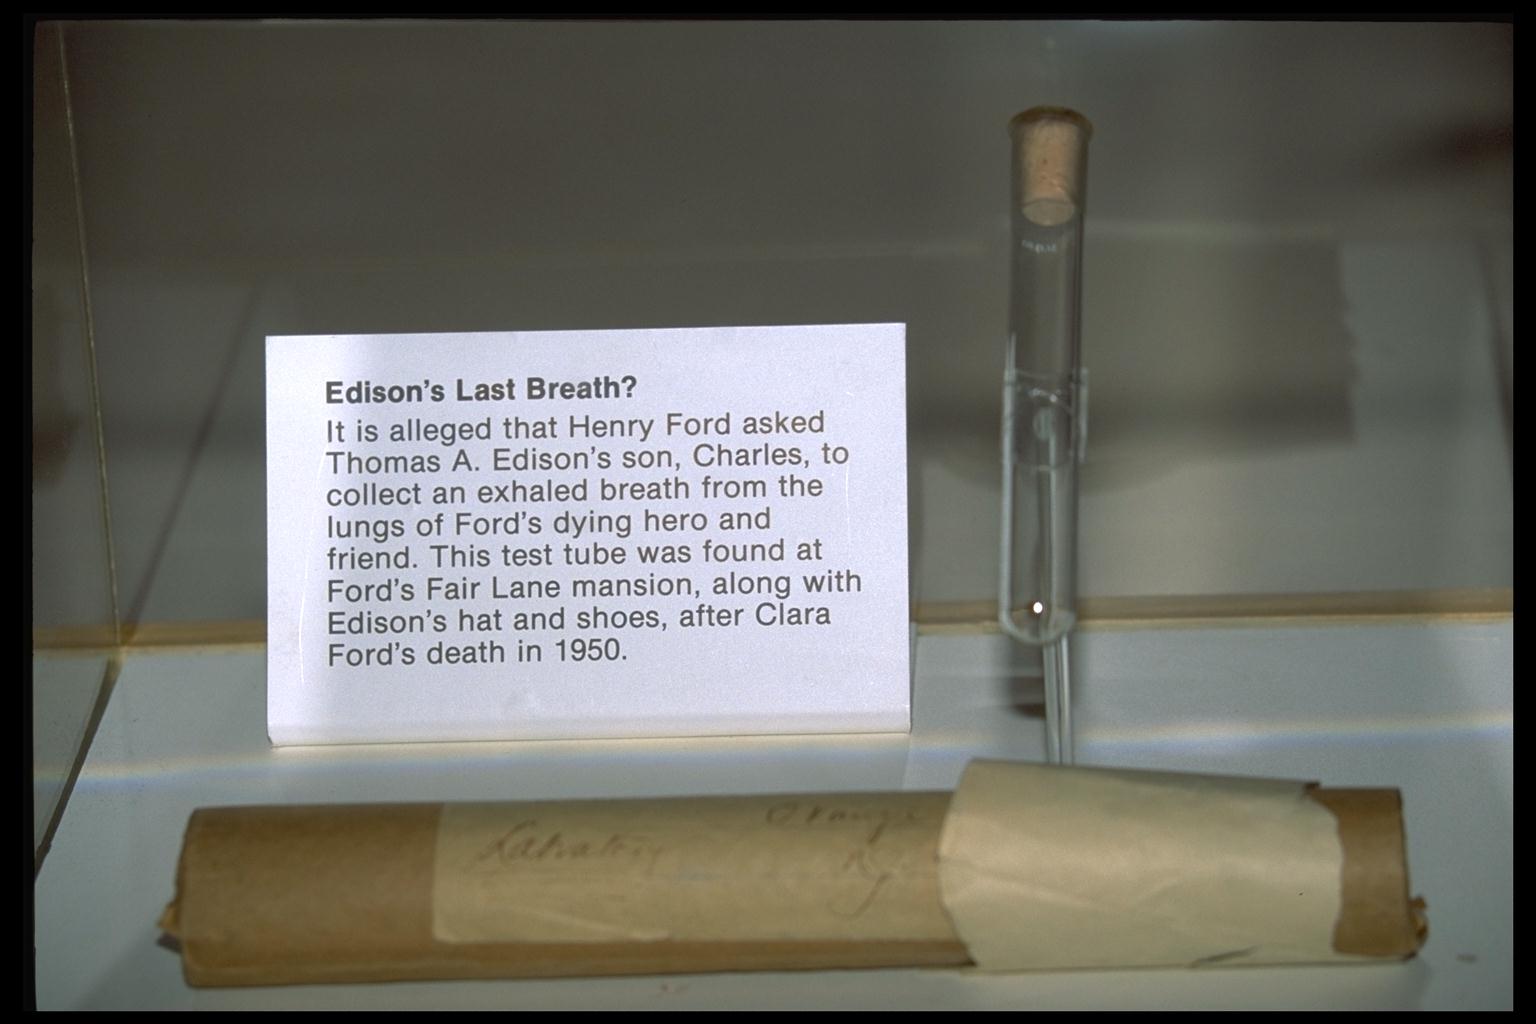 Edison's Last Breath?
It is alleged that Henry Ford asked
Thomas A. Edison's son, Charles, to
collect an exhaled breath from the
lungs of Ford's dying hero and
friend. This test tube was found at
Ford's Fair Lane mansion, along with
Edison's hat and shoes, after Clara
Ford's death in 1950.
Orange